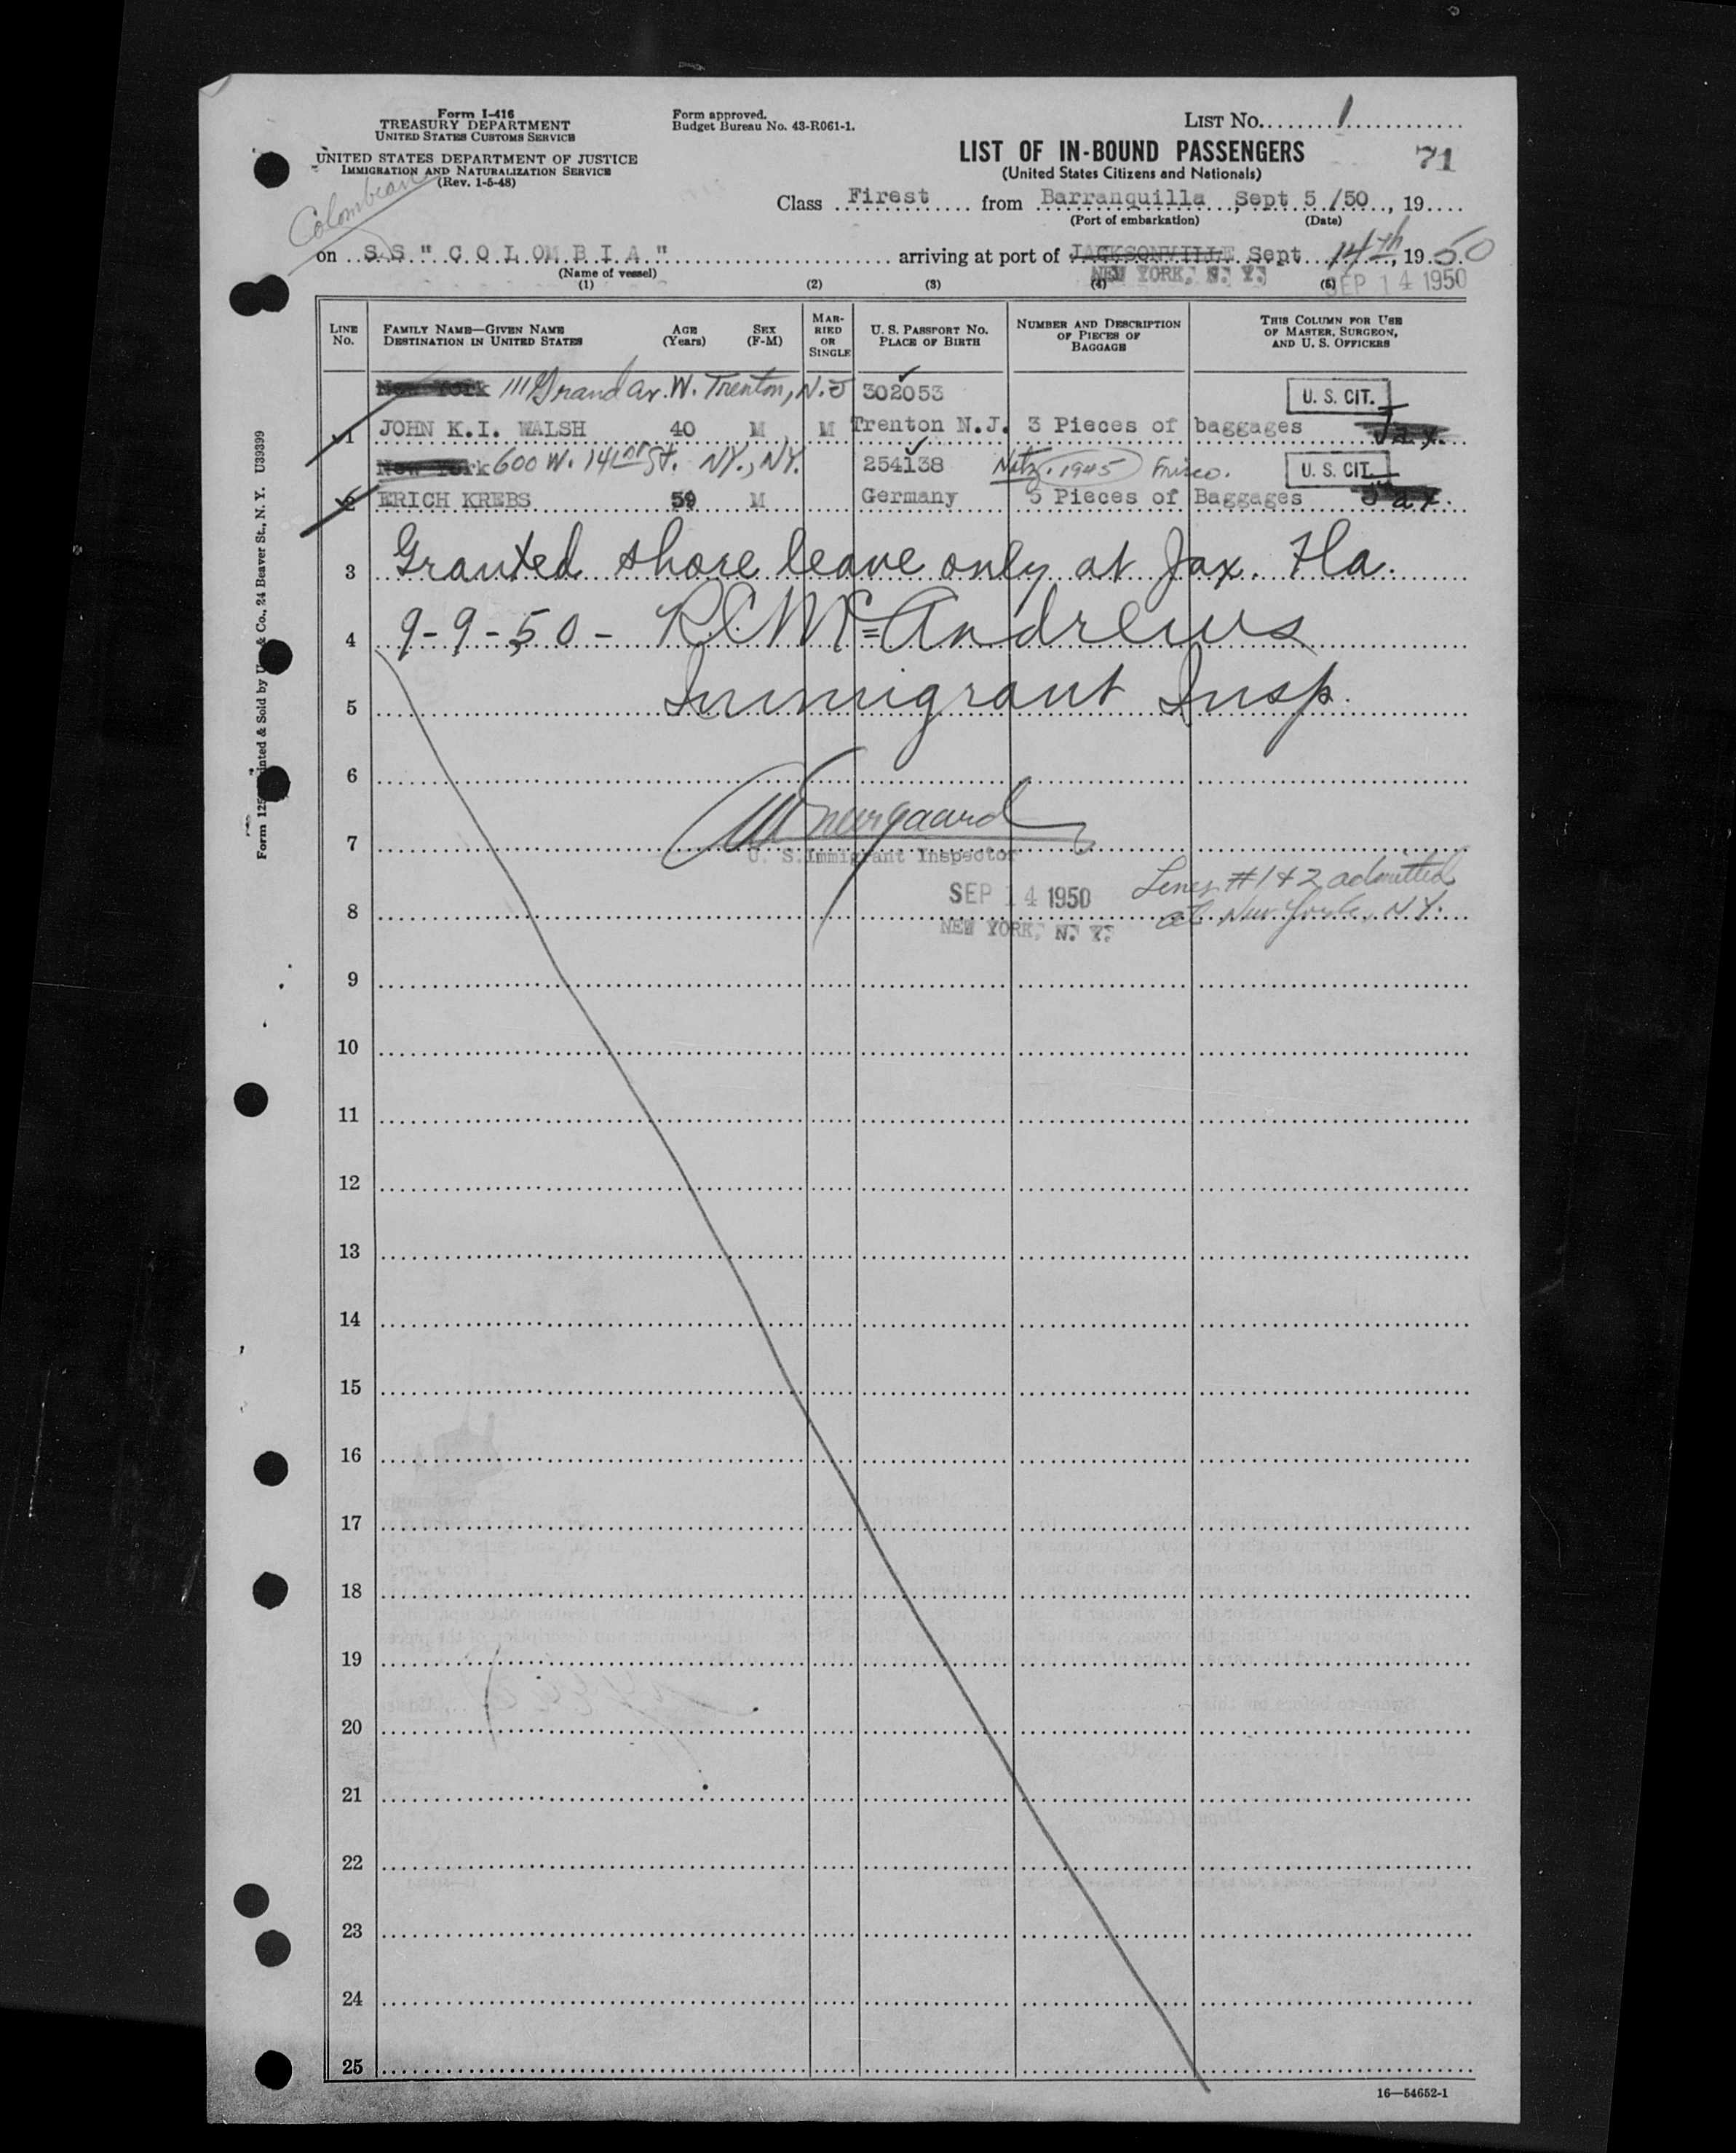 Form I-416
TREASURY DEPARTMENT
UNITED STATES CUSTOMS SERVICE
UNITED STATES DEPARTMENT OF JUSTICE
IMMIGRATION AND NATURALIZATION SERVICE
(Rev. 1-5-48)
Form approved.
Budget Bureau No. 43-R061-1.
LIST No. 1
LIST OF IN-BOUND PASSENGERS
71
(United States Citizens and Nationals)
Colombian
Class Firest from Barranquilla, Sept 5/50, 19
(Port of embarkation) (Date)
on SS "COLOMBIA" arriving at port of JACKSONVILLE Sept 14th, 1950
(Name of vessel) NEW YORK, N. Y. SEP 14 1950
(1) (2) (3) (4) (5)
LINE No.
FAMILY NAME—GIVEN NAME
DESTINATION IN UNITED STATES
AGE (Years)
SEX (F-M)
MARRIED OR SINGLE
U. S. PASSPORT No.
PLACE OF BIRTH
NUMBER AND DESCRIPTION OF PIECES OF BAGGAGE
THIS COLUMN FOR USE OF MASTER, SURGEON, AND U. S. OFFICERS
New York 111 Grand Av. W. Trenton, N.J 302053 U. S. CIT.
1 JOHN K.I. WALSH 40 M M Trenton N.J. 3 Pieces of baggages Jax.
New York 600 W. 141st St. NY., NY. 254138 Ntz. 1945 Frisco. U. S. CIT.
2 ERICH KREBS 59 M Germany 5 Pieces of Baggages Jax.
3 Granted shore leave only at Jax. Fla.
4 9-9-50- R C McAndrews
5 Immigrant Insp.
6
7
U. S. Immigrant Inspector
8 SEP 14 1950 Lines #1+2 admitted
NEW YORK, N. Y. at New York, NY.
9
10
11
12
13
14
15
16
17
18
19
20
21
22
23
24
25
16—54652-1
Form 125 Printed & Sold by & Co., 24 Beaver St., N. Y. U39399